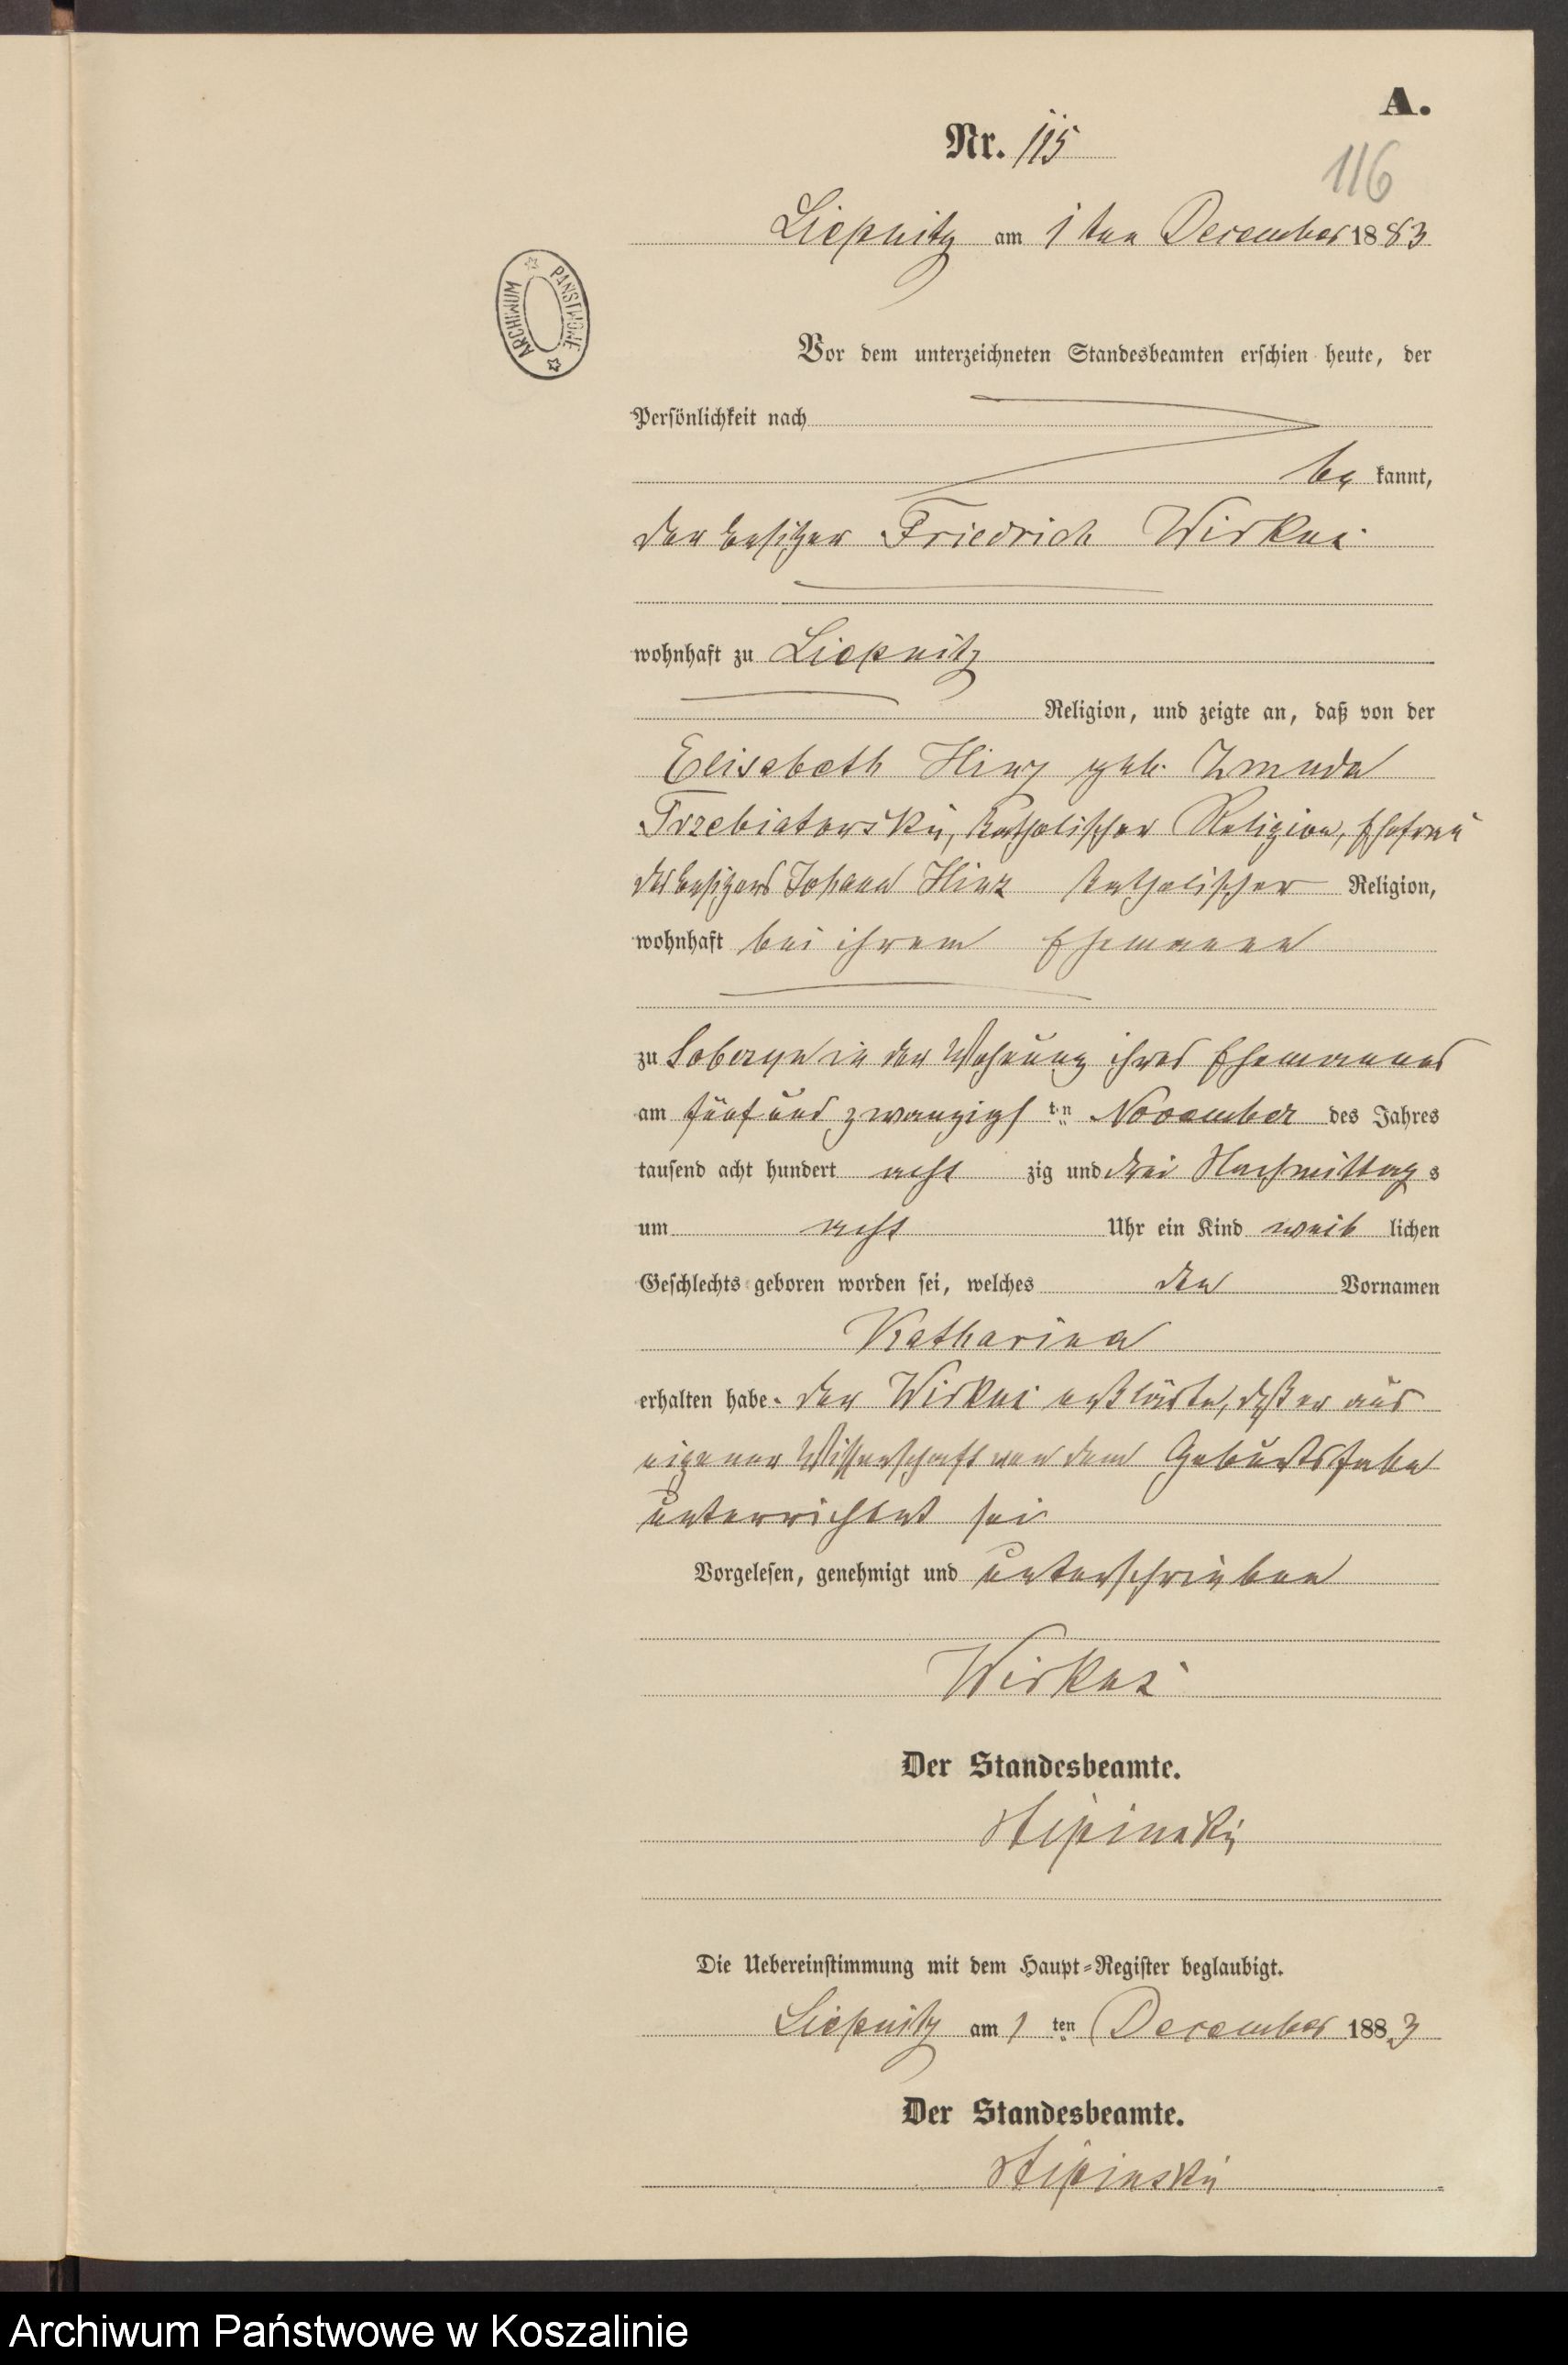 A.
Nr. 115
116
Liepnitz am 1ten December 1883
ARCHIWUM PAŃSTWOWE
Vor dem unterzeichneten Standesbeamten erschien heute, der
Persönlichkeit nach
be kannt,
der Besitzer Friedrich Wirkus
wohnhaft zu Liepnitz
Religion, und zeigte an, daß von der
Elisabeth Hinz geb. Zmuda
Trzebiatowski, katholischer Religion, Ehefrau
des Besitzers Johann Hinz katholischer Religion,
wohnhaft bei ihrem Ehemanne
zu in der Wohnung ihres Ehemannes
am fünf und zwanzigs ten November des Jahres
tausend acht hundert acht zig und drei Nachmittag s
um acht Uhr ein Kind weib lichen
Geschlechts geboren worden sei, welches den Vornamen
Katharina
erhalten habe. der Wirkus erklärte, daß er aus
eigener Wissenschaft von dem Geburtsfalle
unterrichtet sei
Vorgelesen, genehmigt und unterschrieben
Wirkus
Der Standesbeamte.
Die Uebereinstimmung mit dem Haupt-Register beglaubigt.
Liepnitz am 1 ten December 1883
Der Standesbeamte.
Archiwum Państwowe w Koszalinie